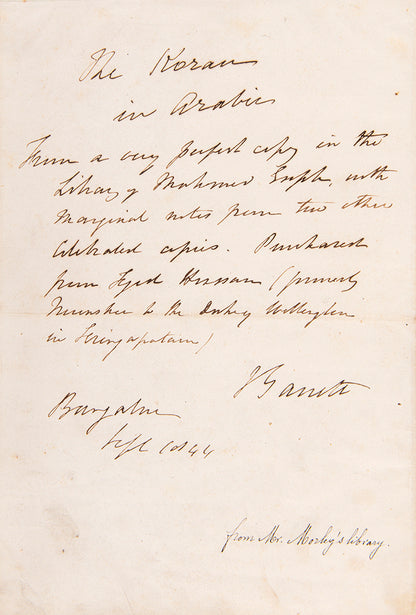 The Koran
in Arabic
From a very perfect copy in the
Library of Mahmud Shah, with
Marginal notes from two other
Celebrated copies. Purchased
from Syed Hussain (formerly
Moonshee to the Duke of Wellington
in Seringapatam)
J Garrett
Bangalore
Sept 1844
from Mr. Morley's library.